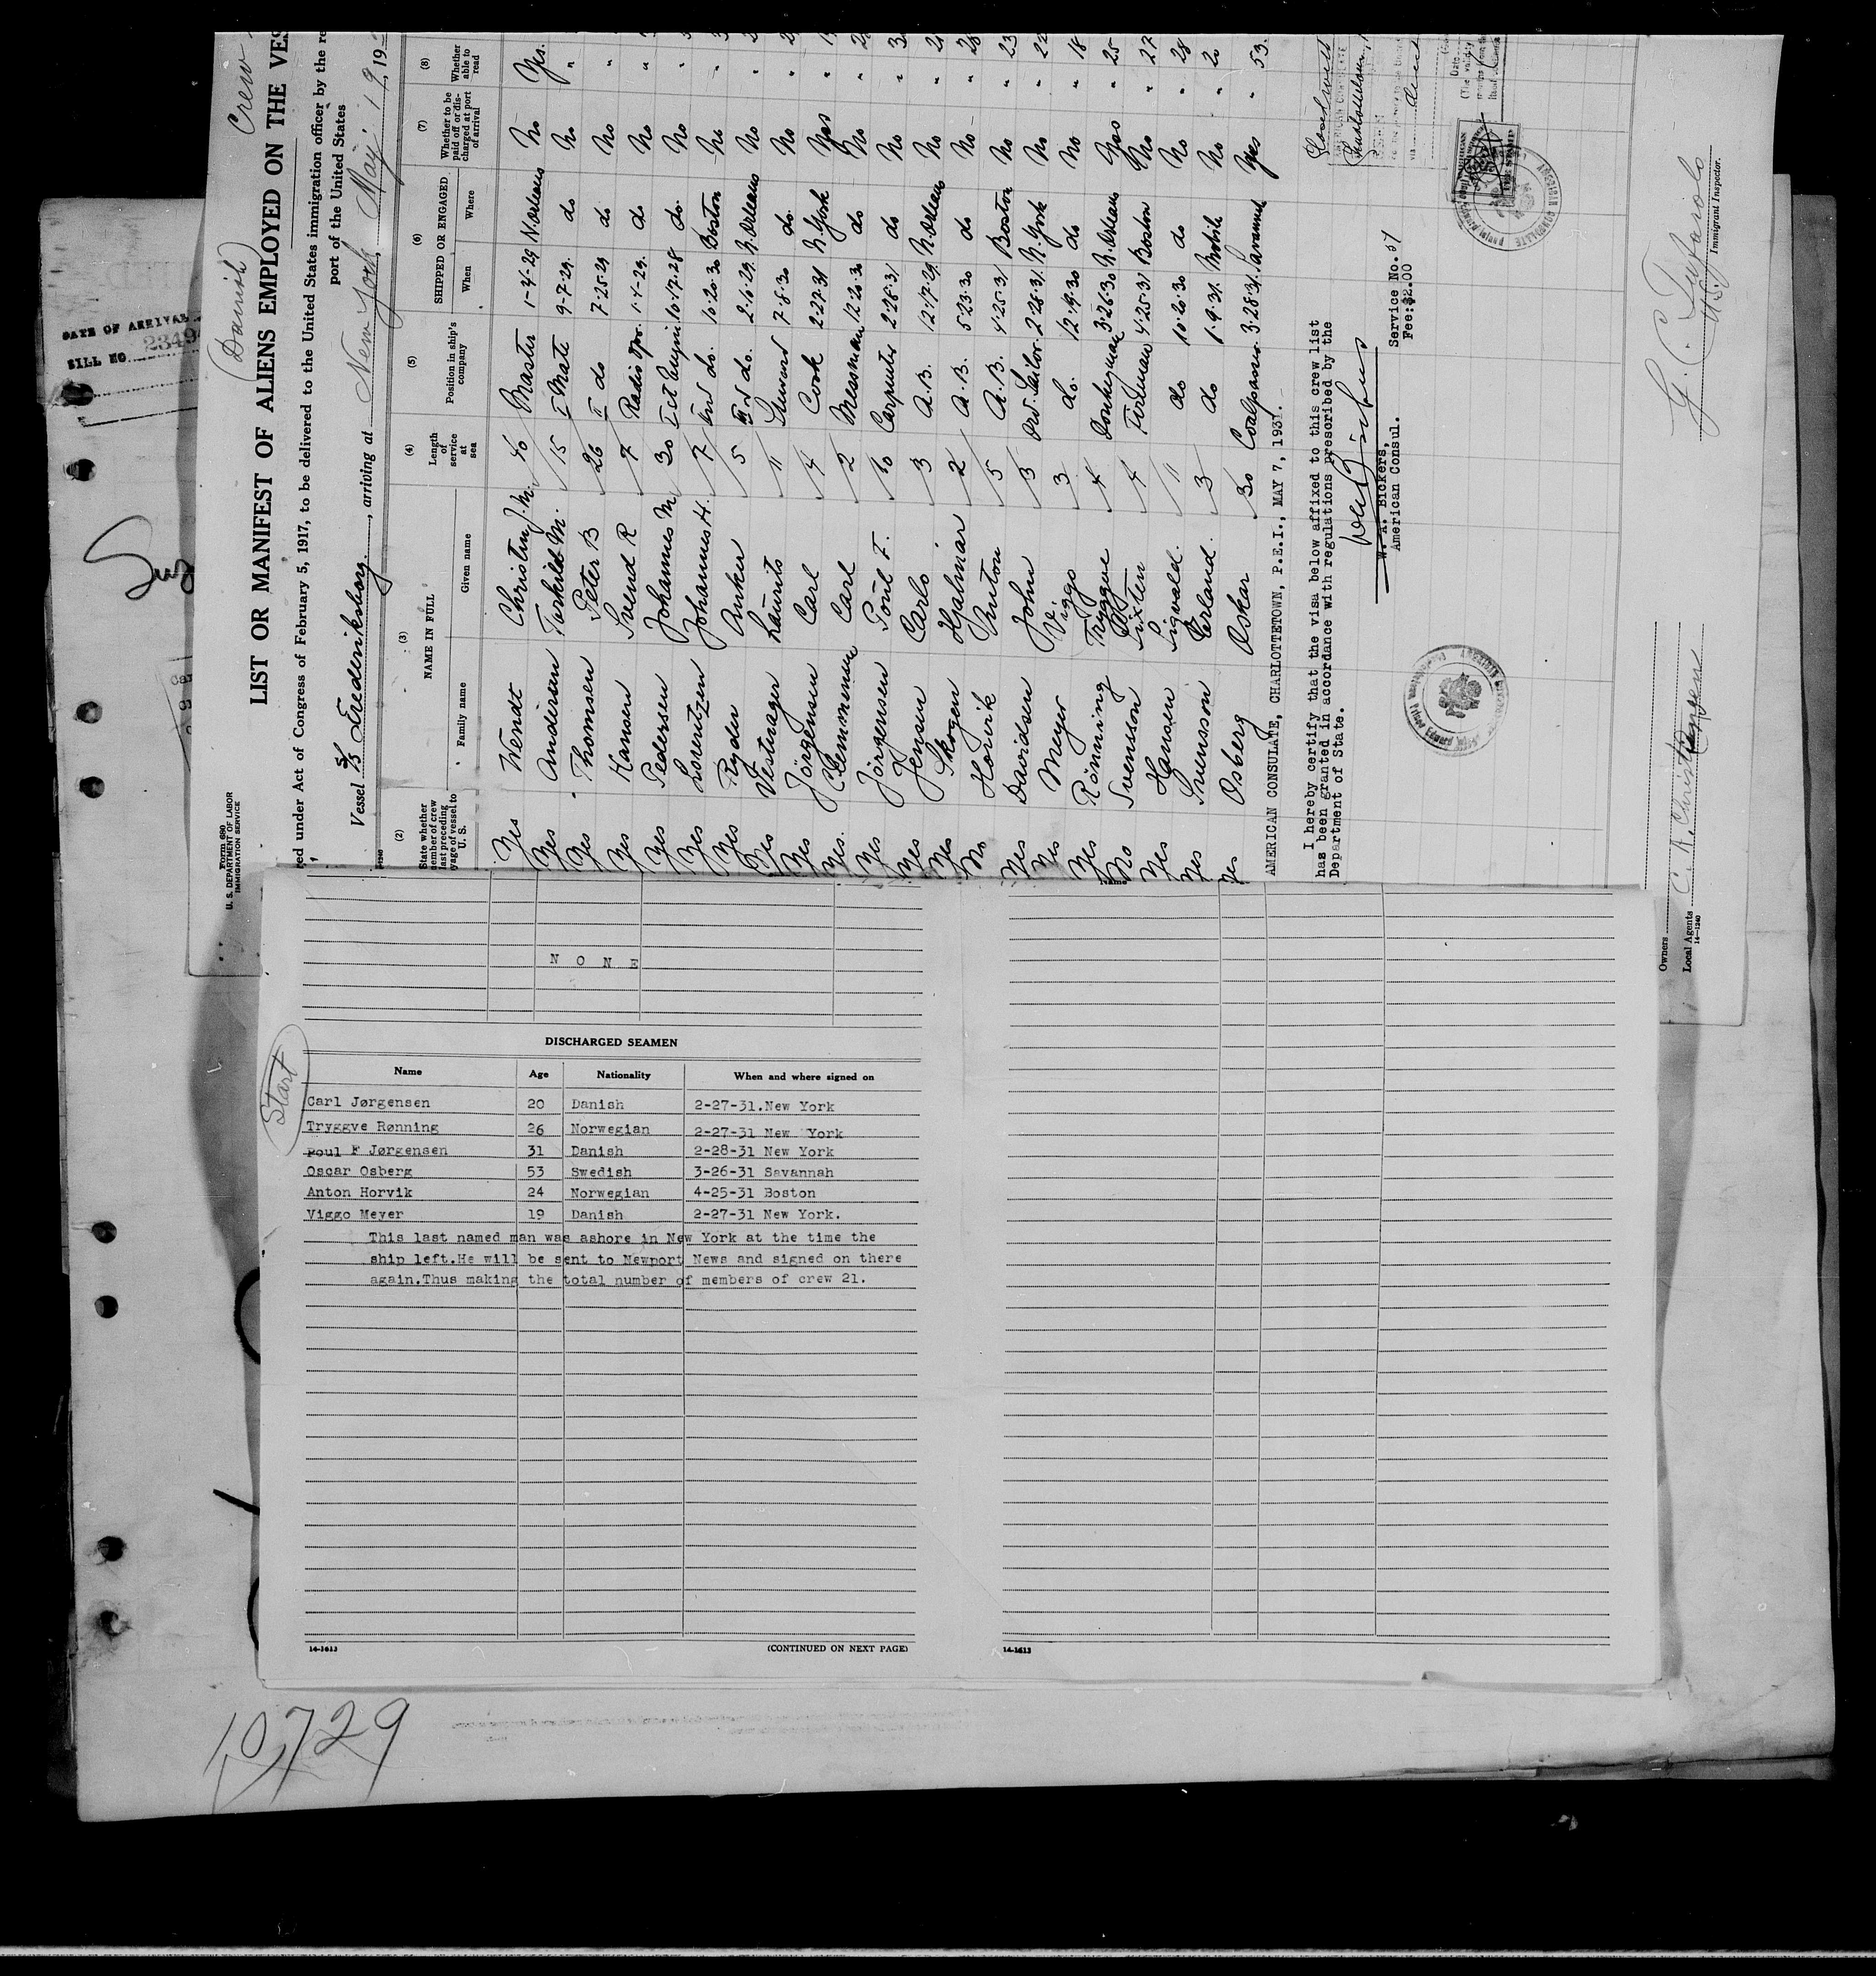 Form 680
U. S. DEPARTMENT OF LABOR
IMMIGRATION SERVICE
(Danish)
Crew
LIST OR MANIFEST OF ALIENS EMPLOYED ON THE VES
ed under Act of Congress of February 5, 1917, to be delivered to the United States immigration officer by the re
port of the United States
Vessel S/S Frederiksborg, arriving at New York May 19, 19
(2) (3) (4) (5) (6) (7) (8)
State whether member of crew last preceding voyage of vessel to U. S. NAME IN FULL Family name Given name Length of service at sea Position in ship's company SHIPPED OR ENGAGED When Where Whether to be paid off or discharged at port of arrival Whether able to read
Yes Wendt Christian J. M. 40 Master 1-4-29 N. Orleans No Yes.
Yes Andersen Torkild M. 15 I Mate 9-7-29 do No "
Yes Thomsen Peter B 26 II do 7-25-29 do No "
Yes Hansen Svend R 7 Radio Opr. 1-4-29 do No "
Yes Pedersen Johannes M. 30 10-17-28 do. No "
Yes Lorentzen Johannes H. 7 IInd do. 10-20-30 Boston No "
Yes Ryder Anker 5 III d do. 2-16-29 N. Orleans No "
Yes Vestenager Laurits 11 Steward 7-8-30 do. No "
Yes Jörgensen Carl 4 Cook 2-27-31 N. York Yes "
Yes. Clemmensen Carl 2 Messman 12-20-30 do No "
Yes Jörgensen Poul F. 10 Carpenter 2-28-31 do No "
Yes Jensen Carlo 3 A.B. 12-17-29 N. Orleans No "
Yes Skogen Hjalmar 2 A.B. 5-23-30 do No "
No Horvik Anton 5 A.B. 4-25-31 Boston No " 23
Yes Davidsen John 3 Ord. Sailor 2-28-31 N. York No " 22
Yes Meyer Viggo 3 do. 12-19-30 do No " 18
Yes Rönning Tryggve 4 Donkeyman 3-26-30 N. Orleans Yes " 25
No Svensson Sixten 4 Fireman 4-25-31 Boston No " 27
Yes Hansen Sigvald. 11 do 10-20-30 do No " 28
Yes Svensson Erland. 3 do 1-9-31 Mobile No " 20
Yes Osberg Oskar 30 Coalpasser 3-28-31 Savannah Yes " 53.
AMERICAN CONSULATE, CHARLOTTETOWN, P.E.I., MAY 7, 1931.
I hereby certify that the visa below affixed to this crew list
has been granted in accordance with regulations prescribed by the
Department of State.
W. A. Bickers,
American Consul.
Service No. 57
Fee: $2.00
Immigrant Inspector.
Owners
Local Agents C. A. Christensen
14-1240
DATE OF ARRIVAL
BILL NO. 2349
NONE
Name
Start
DISCHARGED SEAMEN
Name Age Nationality When and where signed on
Carl Jørgensen 20 Danish 2-27-31.New York
Tryggve Rønning 26 Norwegian 2-27-31 New York
Poul F Jørgensen 31 Danish 2-28-31 New York
Oscar Osberg 53 Swedish 3-26-31 Savannah
Anton Horvik 24 Norwegian 4-25-31 Boston
Viggo Meyer 19 Danish 2-27-31 New York.
This last named man was ashore in New York at the time the
ship left.He will be sent to Newport News and signed on there
again.Thus making the total number of members of crew 21.
14-1613 (CONTINUED ON NEXT PAGE) 14-1613
10729